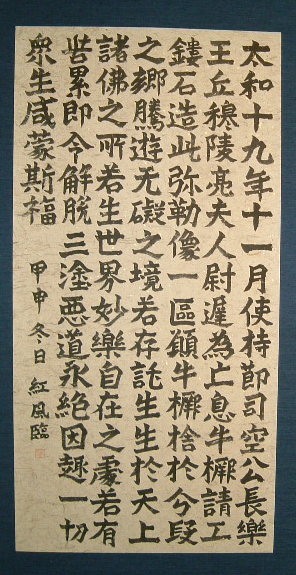 太和十九年十一月使持節司空公長樂
王丘穆陵亮夫人尉遲為亡息牛橛請工
鏤石造此弥勒像一區願牛橛捨於分段
之鄉騰遊无礙之境若存託生生於天上
諸佛之所若生世界妙樂自在之處若有
苦累即令解脫三塗惡道永絕因趣一切
眾生咸蒙斯福
甲申冬日 紅風臨